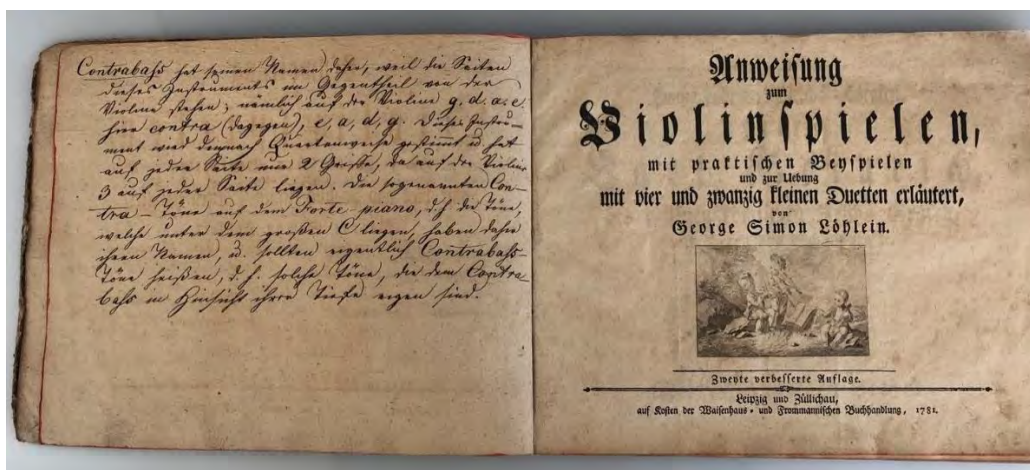 Contrabaß hat seinen Namen daher, weil die Saiten
dieses Instruments im Gegentheil von der
Violine stehen; nämlich auf der Violine g. d. a. e.
hier contra (dagegen), e, a, d, g. Dieses Instru-
ment wird demnach Quartenweise gestimmt u. hat
auf jeder Saite nur 2 Griffe, da auf der Violine
3 auf jeder Saite liegen. Die sogenannten Con-
tra-Töne auf dem Forte piano, d. h. die Töne,
welche unter dem großen C liegen, haben daher
ihren Namen, u. sollten eigentlich Contrabaß-
Töne heißen, d. h. solche Töne, die dem Contra-
baß in Hinsicht ihrer Tiefe eigen sind.
Anweiſung
zum
Violinſpielen,
mit praktiſchen Beyſpielen
und zur Uebung
mit vier und zwanzig kleinen Duetten erläutert,
von
George Simon Löhlein.
Zweyte verbeſſerte Auflage.
Leipzig und Züllichau,
auf Koſten der Waiſenhaus- und Frommanniſchen Buchhandlung, 1781.